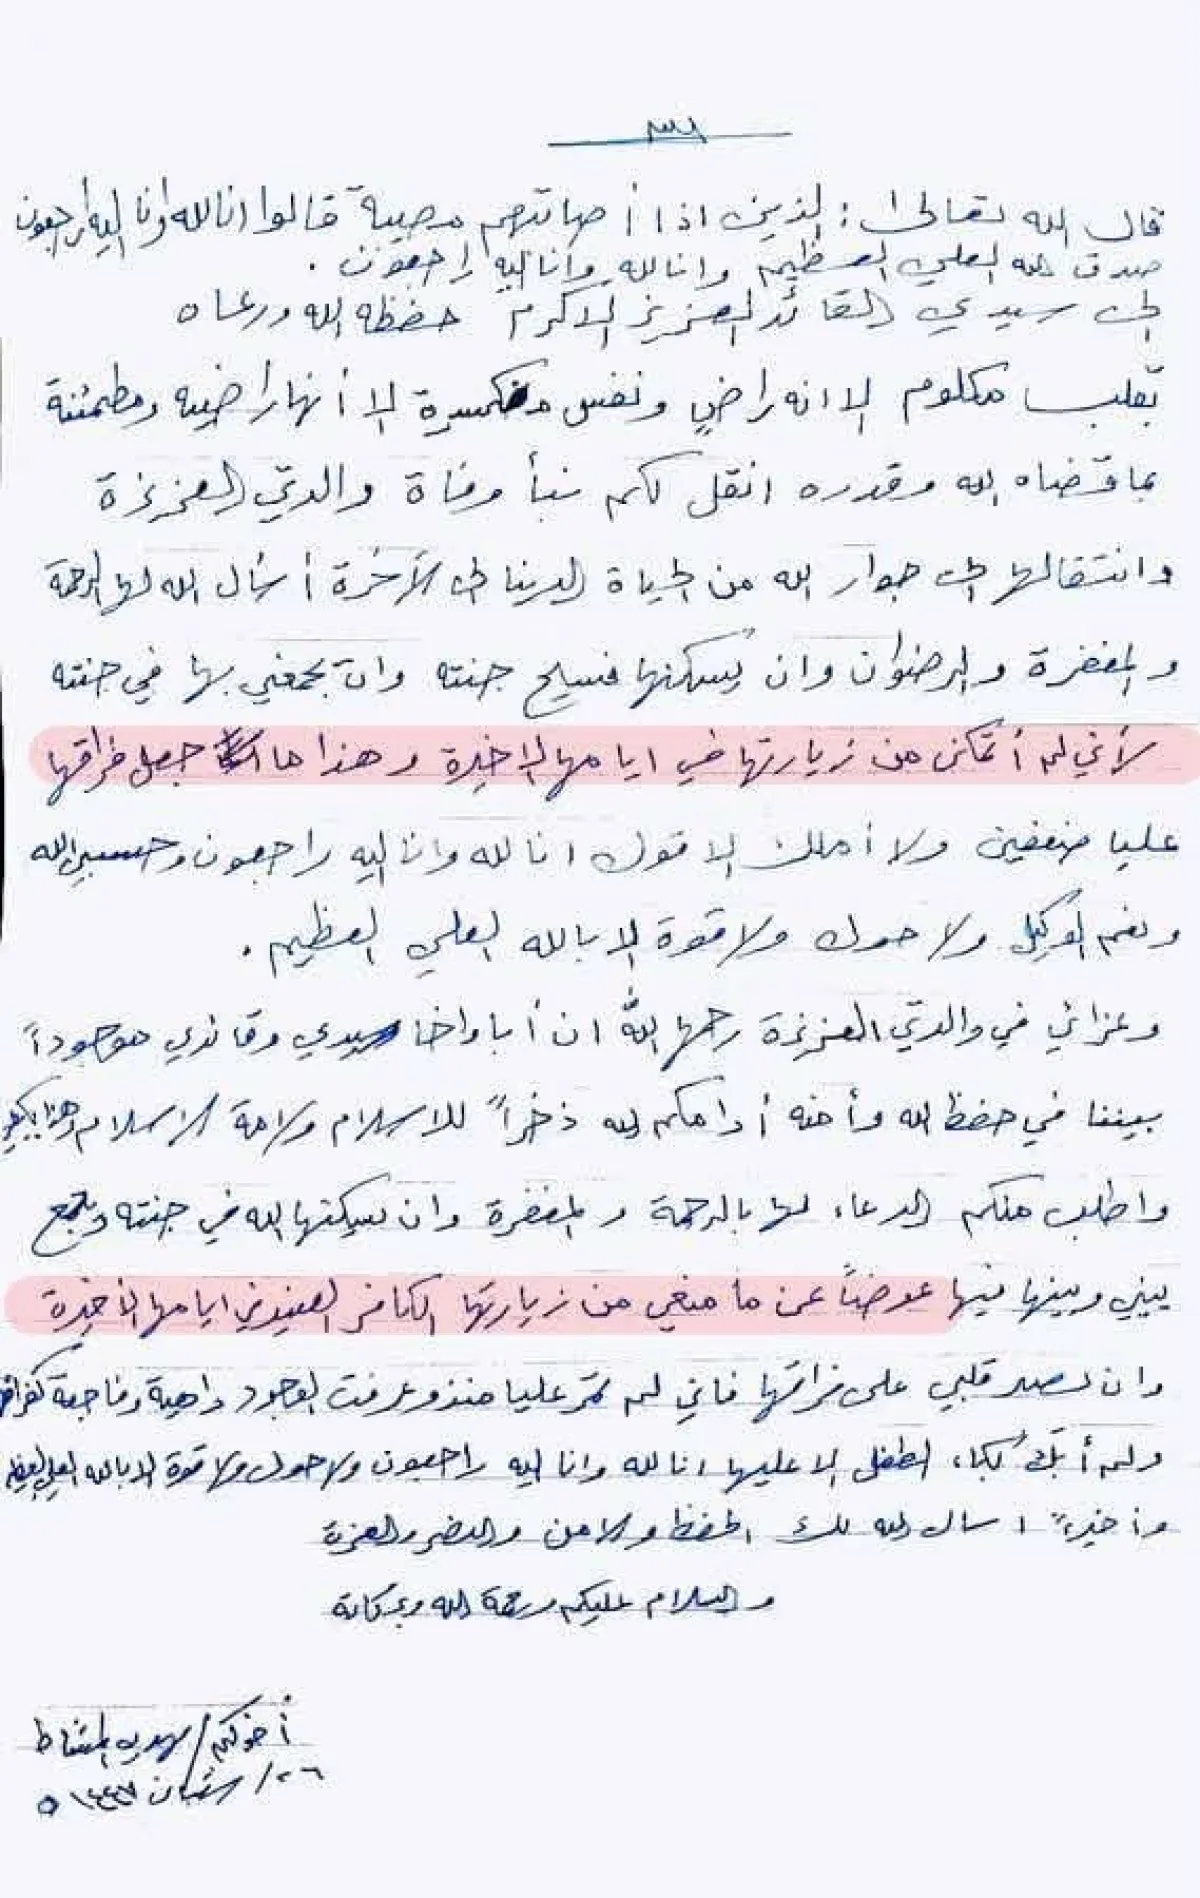 قال الله تعالى: الذين اذا أصابتهم مصيبة قالوا انا لله وأنا إليه راجعون
صدق الله العلي العظيم وانا لله وانا اليه راجعون .
الى سيدي القائد العزيز الاكرم حفظه الله ورعاه
بقلب مكلوم الا انه راضٍ ونفس منكسرة الا أنها راضيه ومطمئنة
بما قضاه الله وقدره انقل لكم نبأ وفاة والدتي العزيزة
وانتقالها الى جوار الله من الحياة الدينا الى الآخرة أسأل الله لها الرحمة
والمغفرة والرضوان وان يسكنها فسيح جنته وان يجمعني بها في جنته
لأني لم أتمكن من زيارتها في ايامها الاخيرة وهذا ما جعل فراقها
عليا ضعفين ولا أملك الا قول انا لله وانا اليه راجعون وحسبي الله
ونعم الوكيل ولا حول ولا قوة الا بالله العلي العظيم .
وعزائي في والدتي العزيزة رحمها الله ان أبا واخا سيدي وقائدي موجوداً
بيننا في حفظ الله وأمنه أدامكم الله ذخراً للاسلام ولامة الاسلام وهذا يكفي
واطلب منكم الدعاء لها بالرحمة والمغفرة وان يسكنها الله في جنته ويجمع
بيني وبينها فيها عوضاً عن ما منعني من زيارتها الكافر ايامها الأخيرة
وان يصبر قلبي على فراقها فاني لم تمر عليا منذو عرفت الوجود داهية وفاجعة كفراقها
ولم أبكِ بكاء الطفل الا عليها انا لله وانا اليه راجعون ولا حول ولا قوة الا بالله العلي العظيم
وأخيراً اسال الله لك الحفظ والامن والنصر والعزة
والسلام عليكم ورحمة الله وبركاتة
أخوكم / مهدي المشاط
٢٦ / شعبان ١٤٤٧ ه